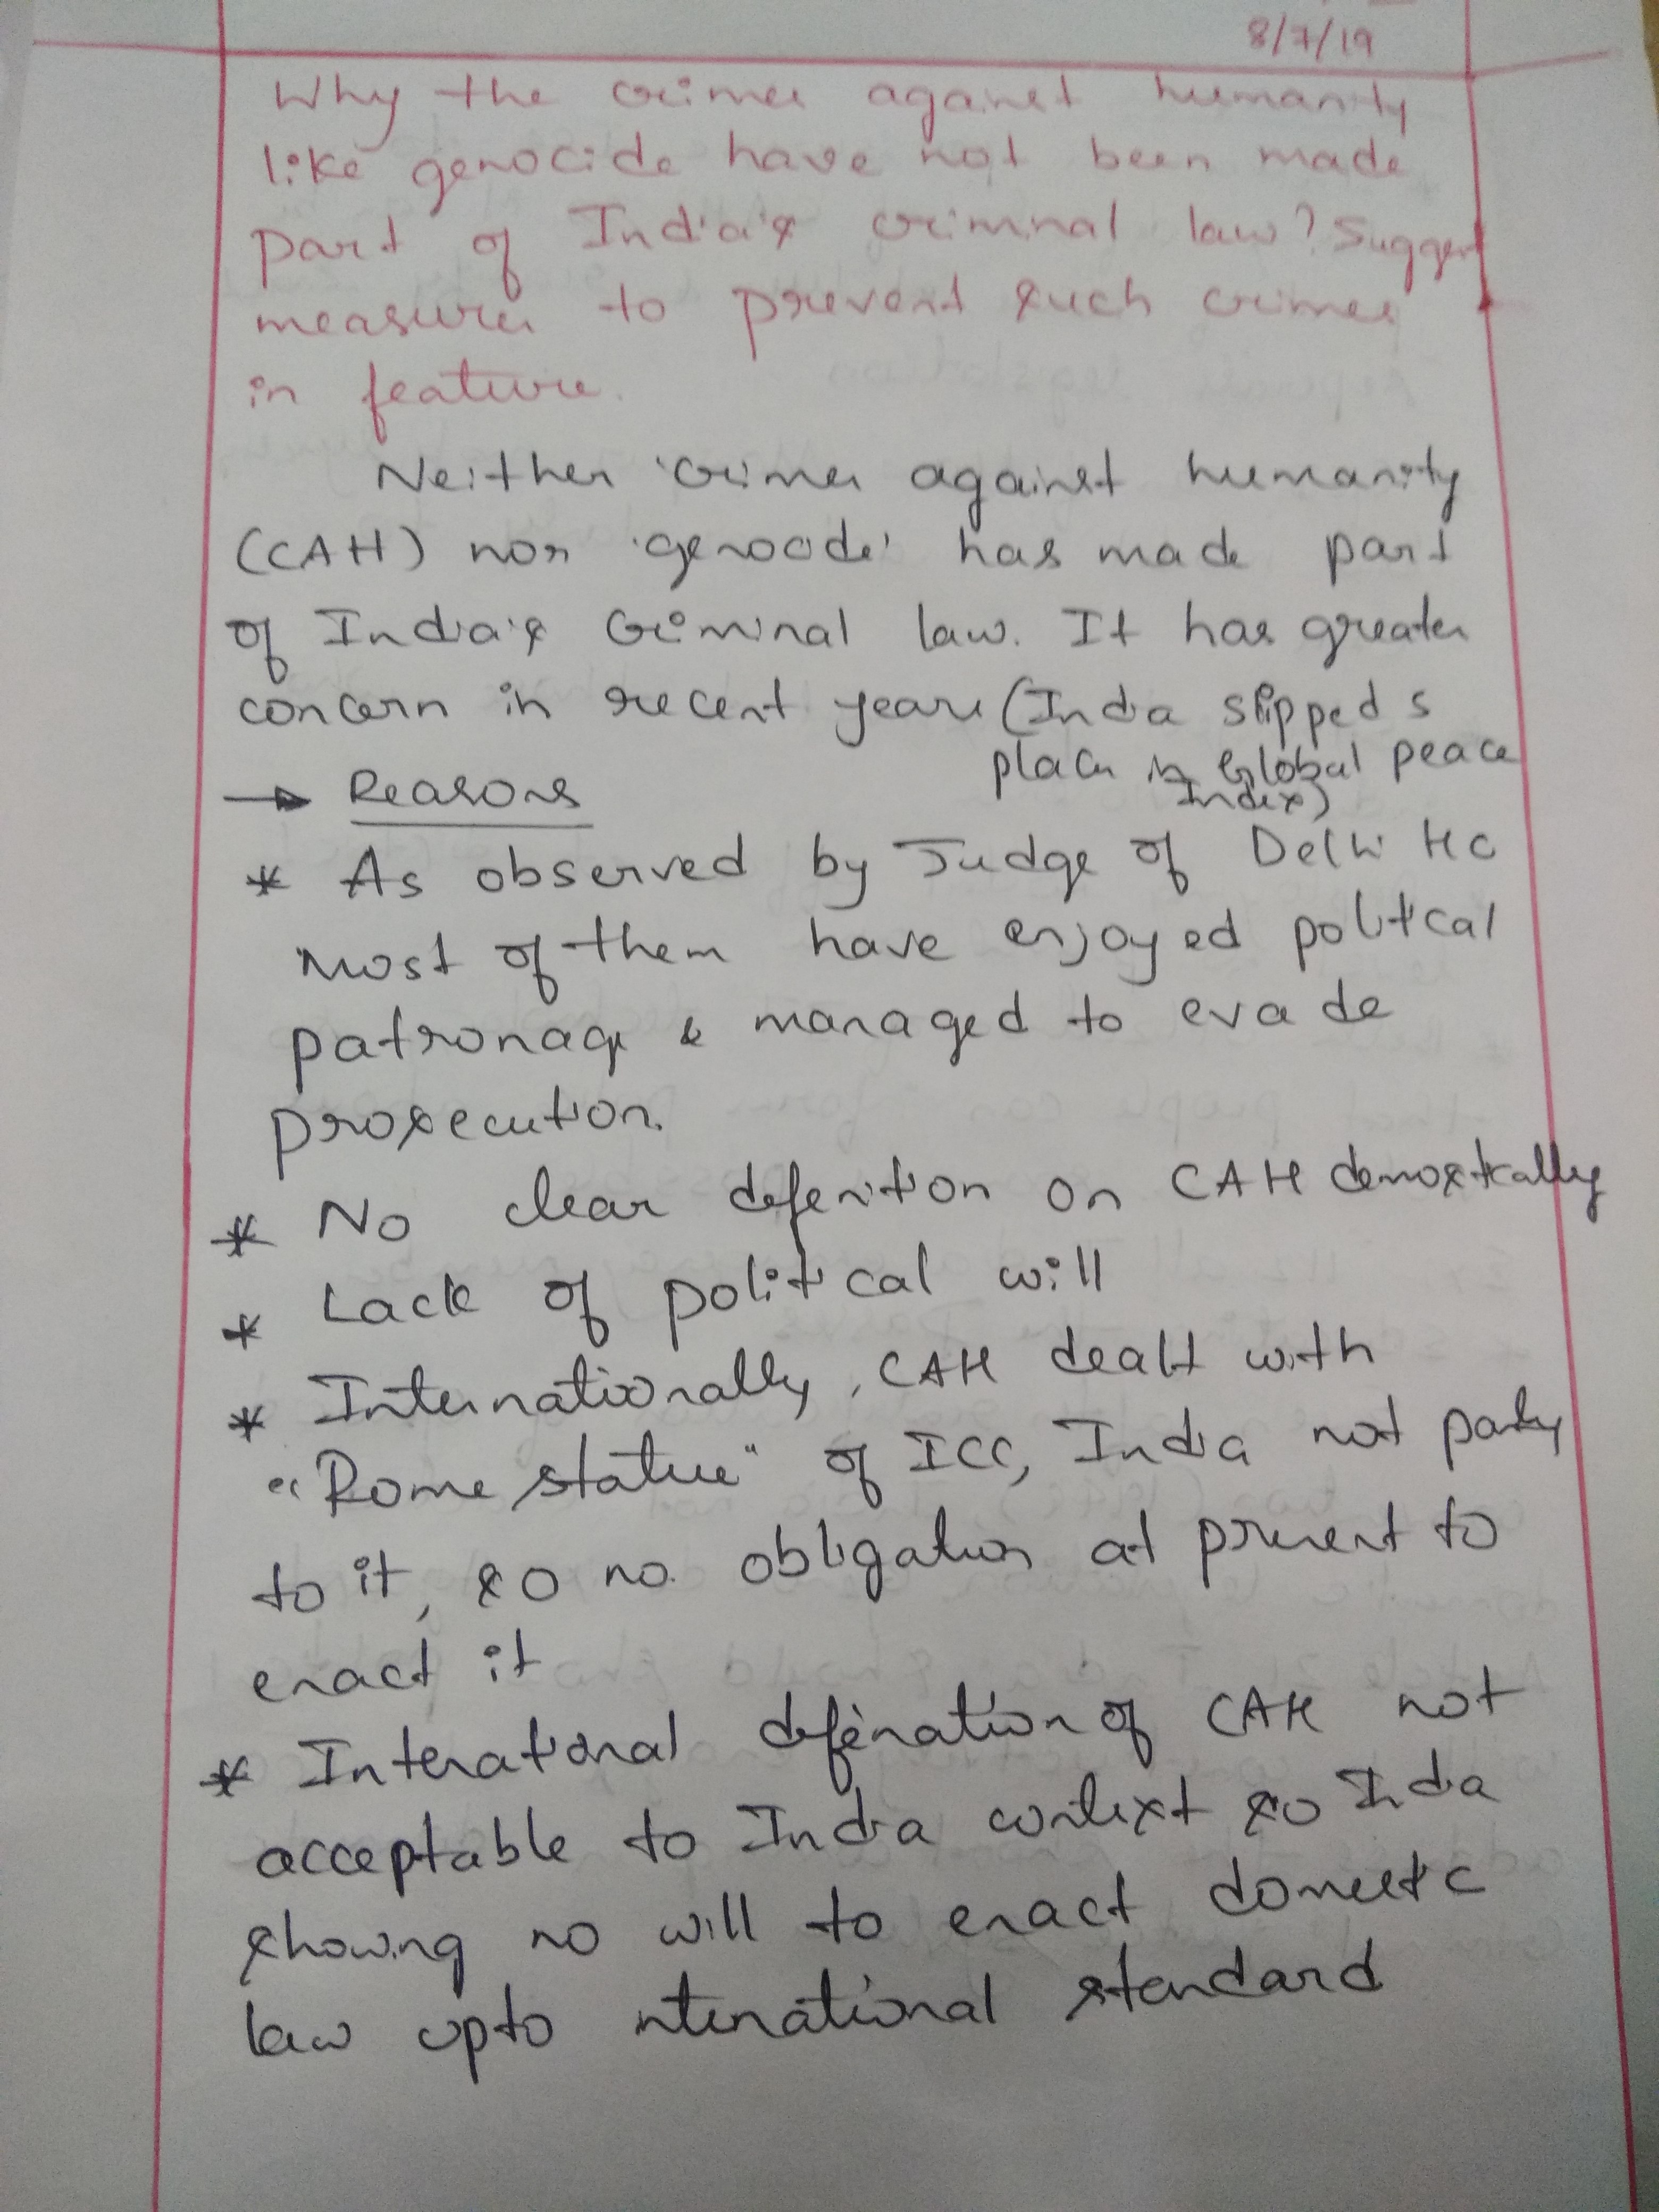 8/7/19
Why the crimes against humanity
like genocide have not been made
part of India's criminal law? Suggest
measures to prevent such crimes
in feature.
Neither 'crimes against humanity
(CAH) nor 'genocide' has made part
of India's Criminal law. It has greater
concern in recent years (India slipped 5
places in Global peace
Index)
→ Reasons
* As observed by Judge of Delhi HC
Most of them have enjoyed political
patronage & managed to evade
prosecution.
* No clear defenition on CAH demostically
* Lack of political will
* Internationally, CAH dealt with
"Rome statue" of ICC, India not party
to it, so no obligation at present to
enact it
* Interational defination of CAH not
acceptable to India context so India
showing no will to enact domestic
law upto international standard